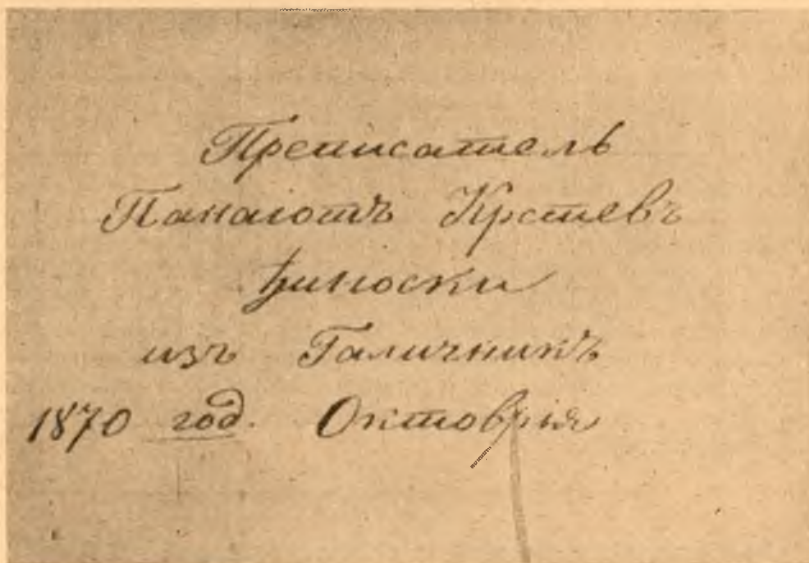 Преписатель
Панаіотъ Крстевъ
Ђиноски
изъ Галичникъ
1870 год. Октоврія